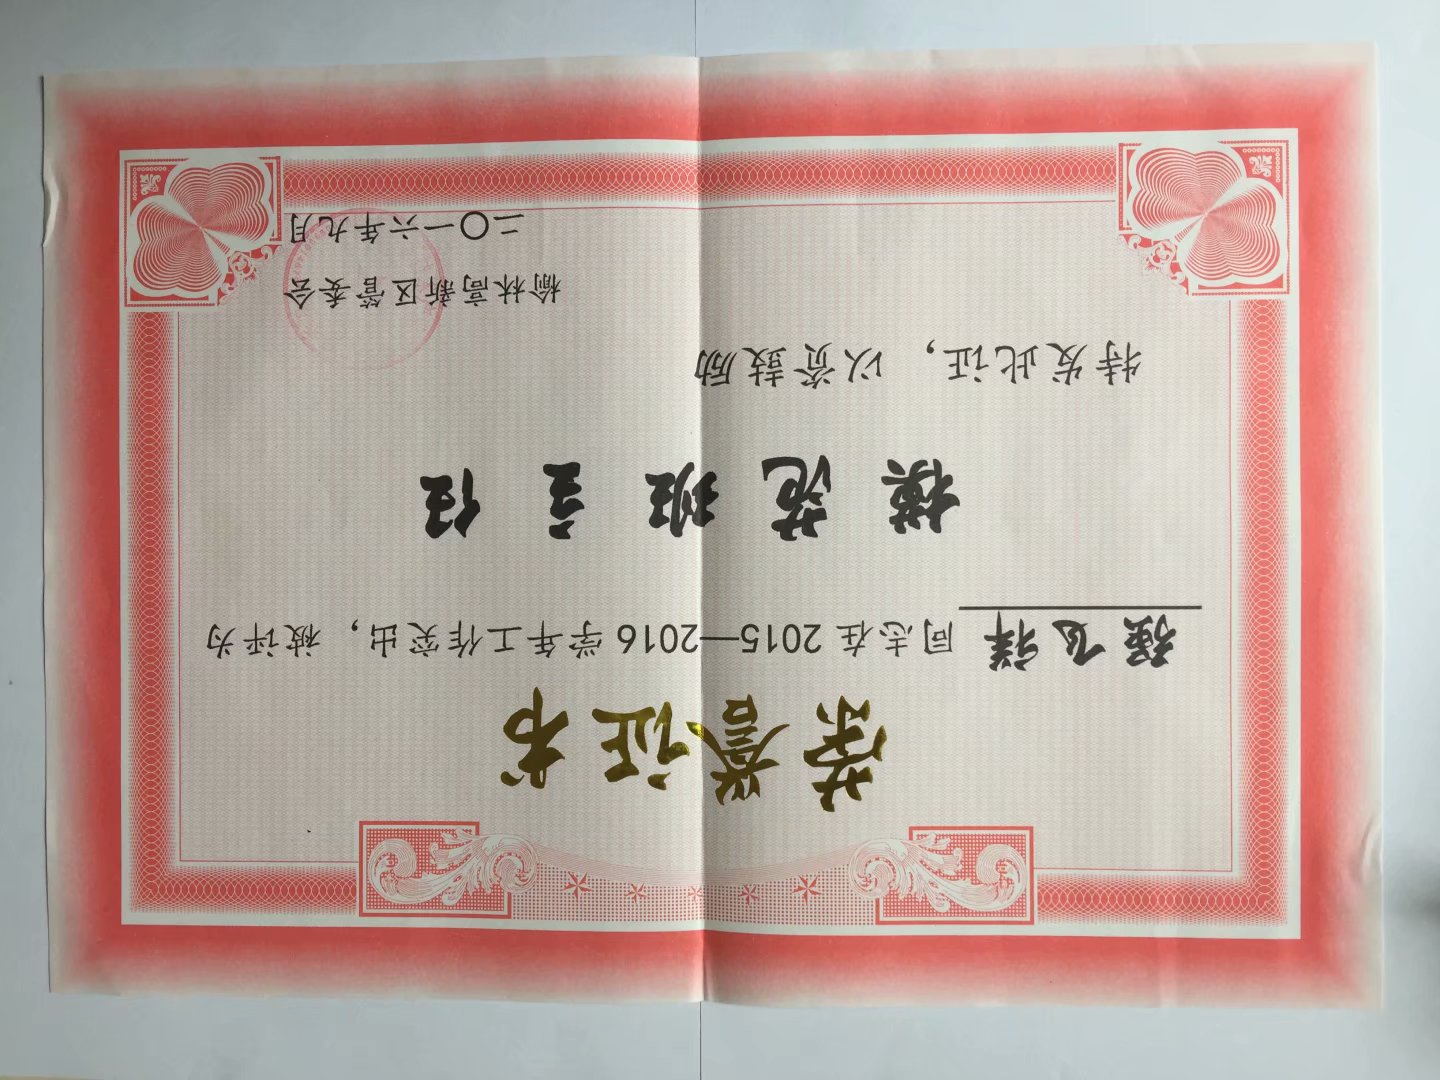 荣誉证书
强飞祥 同志在 2015—2016 学年工作突出，被评为
模范班主任
特发此证，以资鼓励
榆林高新区管委会
二〇一六年九月